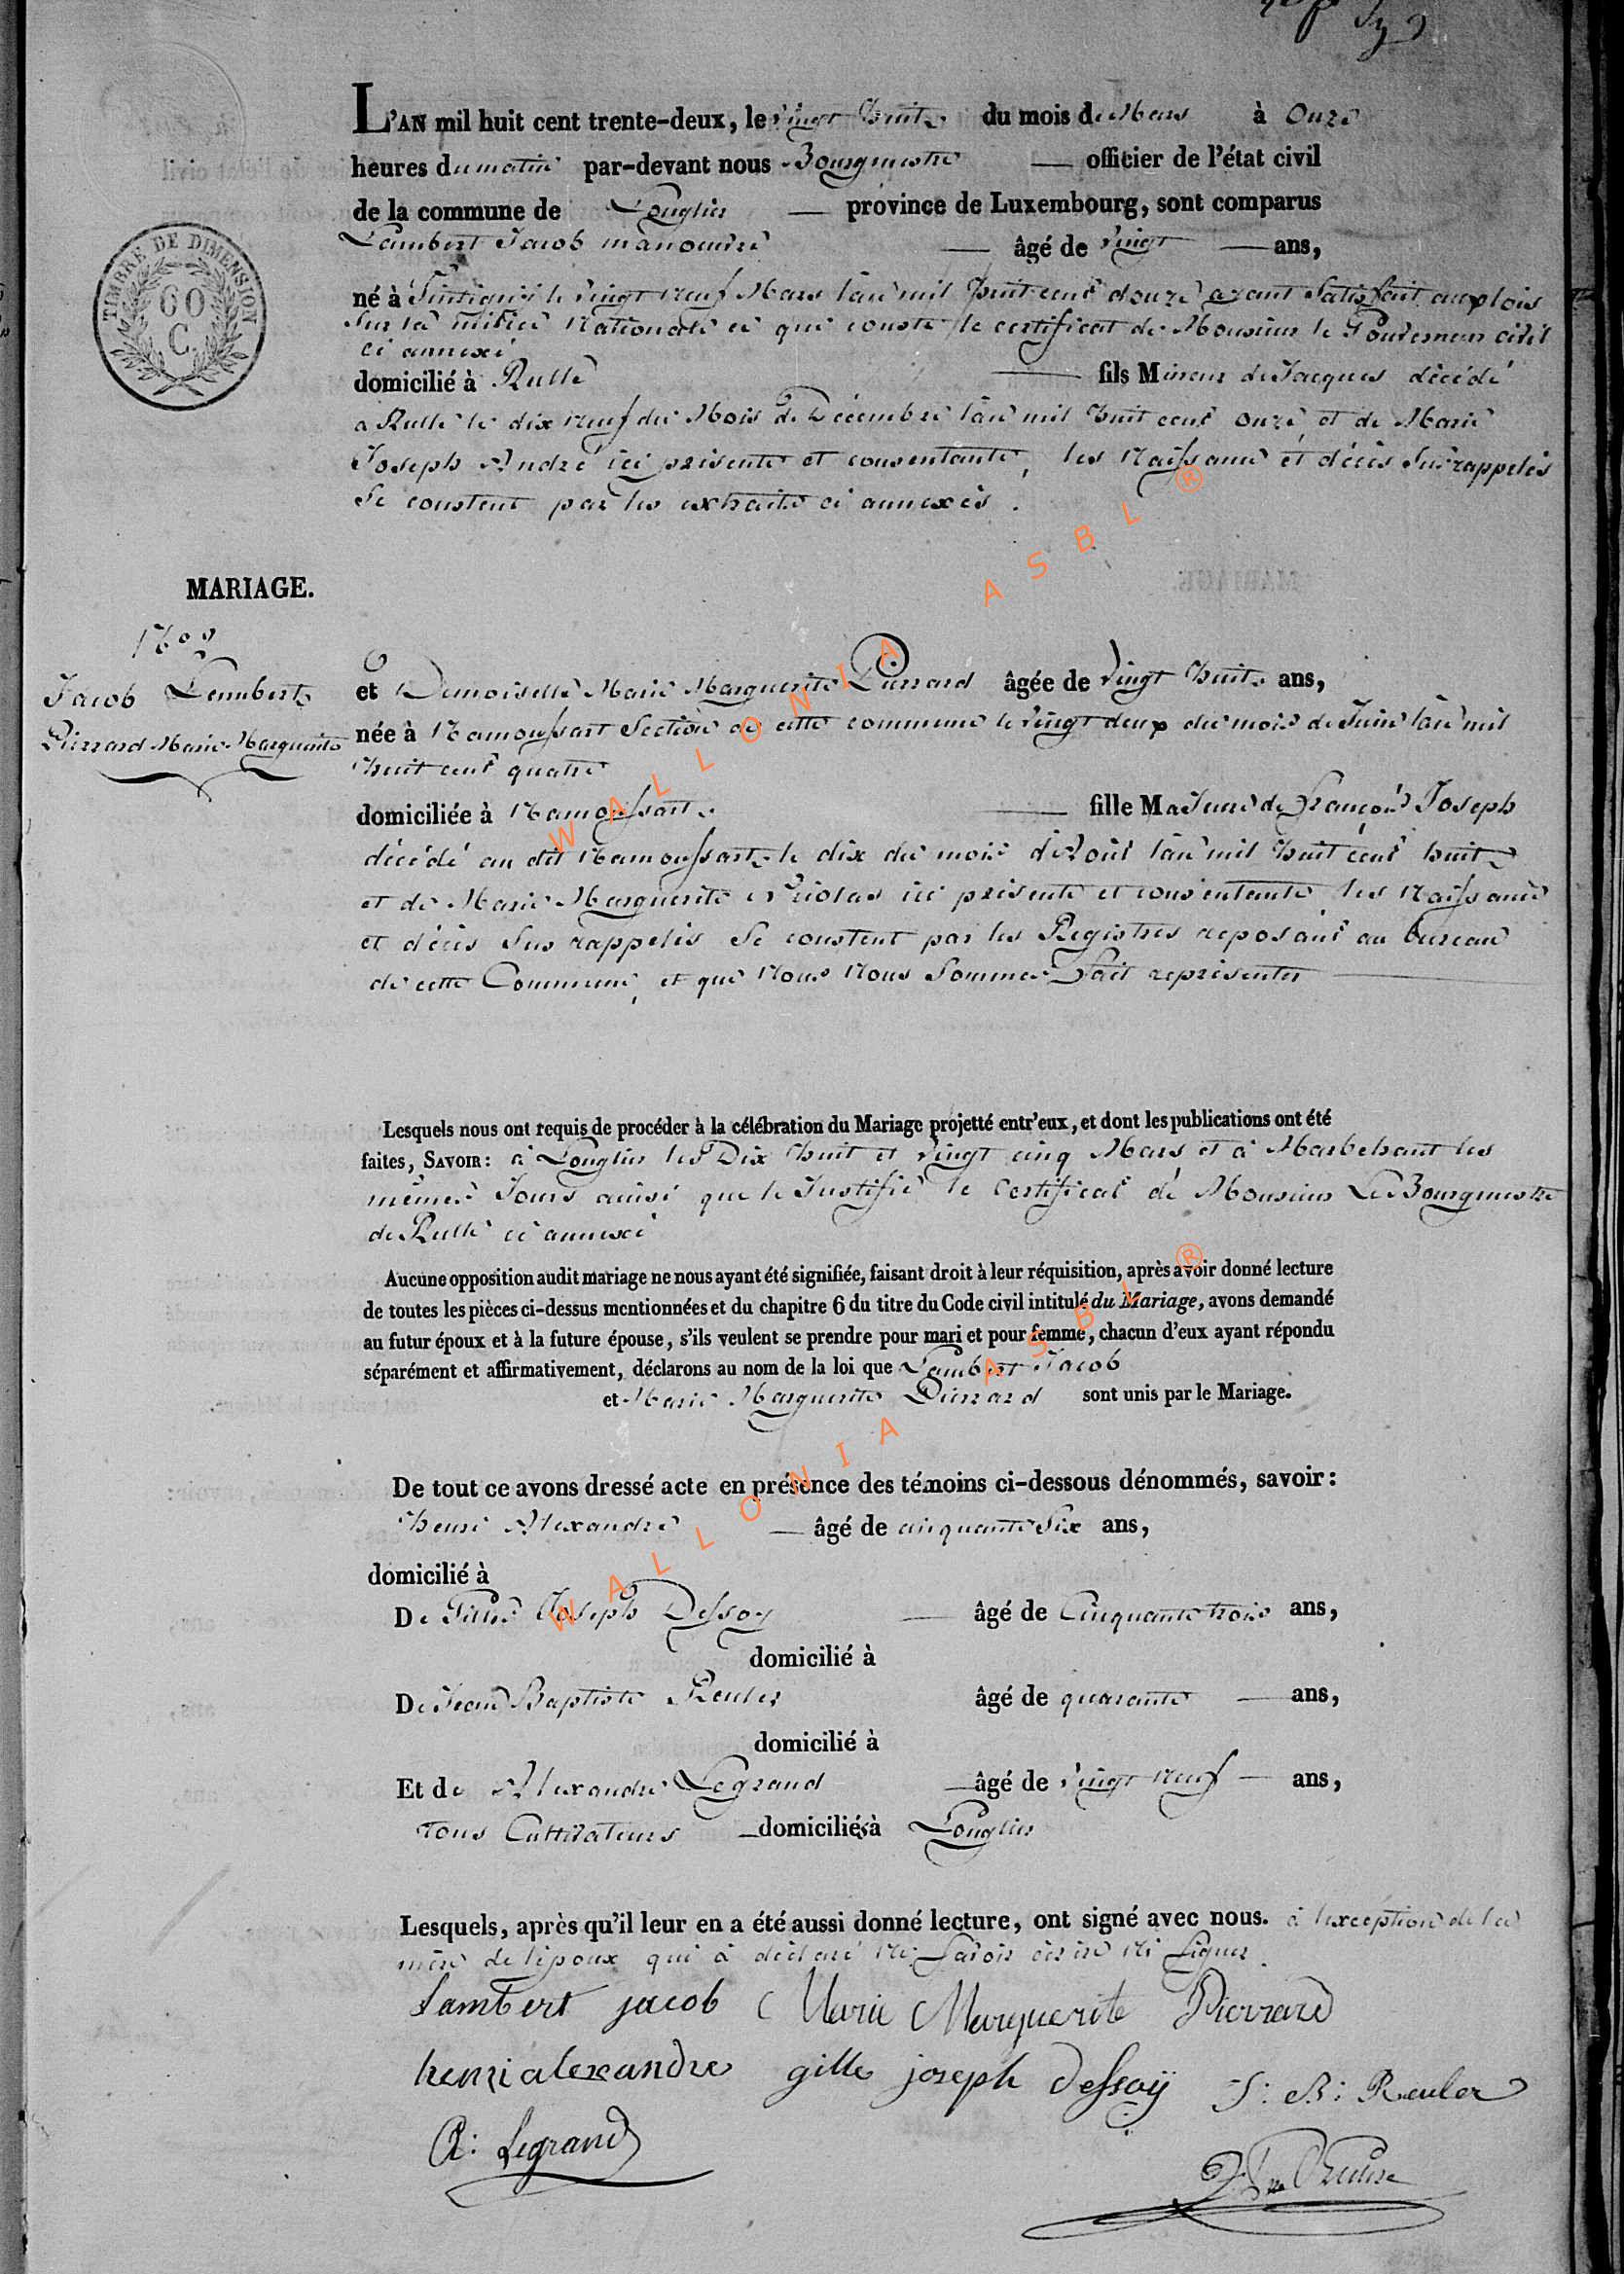 L'AN mil huit cent trente-deux, le vingt huit du mois de Mars à Onze
heures du matin par-devant nous Bourgmestre officier de l'état civil
de la commune de Longlier province de Luxembourg, sont comparus
Lambert Jacob manoeuvre âgé de vingt ans,
né à Tintigny le vingt neuf Mars l'an mil huit cent douze ayant satisfait aux lois
sur la milice Nationale ce que conste le certificat de Monsieur le Gouverneur civil
ci annexé
domicilié à Rulle fils Mineur de Jacques décédé
a Rulle le dix neuf du Mois de Décembre l'an mil huit cent onze et de Marie
Joseph André ici présente et consentante, les Naissance et décès susrappelés
se constent par les extraits ci annexés.
TIMBRE DE DIMENSION
60
C.
MARIAGE.
Jacob Lambert
Pierrard Marie Marguerite
et Demoiselle Marie Marguerite Pierrard âgée de vingt huit ans,
née à Namoussart Section de cette commune le vingt deux du mois de Juin l'an mil
huit cent quatre
domiciliée à Namoussart fille Majeure de François Joseph
décédé au dit Namoussart le dix du mois d'Août l'an mil huit cent huit
et de Marie Marguerite Nicolas ici présente et consentante les Naissance
et décès sus rappelés se constent par les Registres reposant au bureau
de cette Commune, et que Nous Nous sommes fait representer
Lesquels nous ont requis de procéder à la célébration du Mariage projetté entr'eux, et dont les publications ont été
faites, SAVOIR: à Longlier les Dix huit et vingt cinq Mars et à Marbehant les
mêmes Jours ainsi que le Justifie le Certificat de Monsieur Le Bourgmestre
de Rulle ci annexé
Aucune opposition audit mariage ne nous ayant été signifiée, faisant droit à leur réquisition, après avoir donné lecture
de toutes les pièces ci-dessus mentionnées et du chapitre 6 du titre du Code civil intitulé du Mariage, avons demandé
au futur époux et à la future épouse, s'ils veulent se prendre pour mari et pour femme, chacun d'eux ayant répondu
séparément et affirmativement, déclarons au nom de la loi que Lambert Jacob
et Marie Marguerite Pierrard sont unis par le Mariage.
De tout ce avons dressé acte en présence des témoins ci-dessous dénommés, savoir:
henri Alexandre âgé de cinquante Six ans,
domicilié à
De Gille Joseph Dessoy âgé de Cinquante trois ans,
domicilié à
De Jean Baptiste Reuler âgé de quarante ans,
domicilié à
Et de Alexandre Legrand âgé de vingt neuf ans,
tous Cultivateurs domiciliés à Longlier
Lesquels, après qu'il leur en a été aussi donné lecture, ont signé avec nous. à l'exception de la
mère de l'époux qui à déclaré Ne Savoir écrire Ni Signer.
Lambert jacob Marie Marguerite Pierrard
henri alexandre gille joseph dessoÿ J: B: Reuler
A: Legrand
WALLONIA ASBL ®
WALLONIA ASBL ®